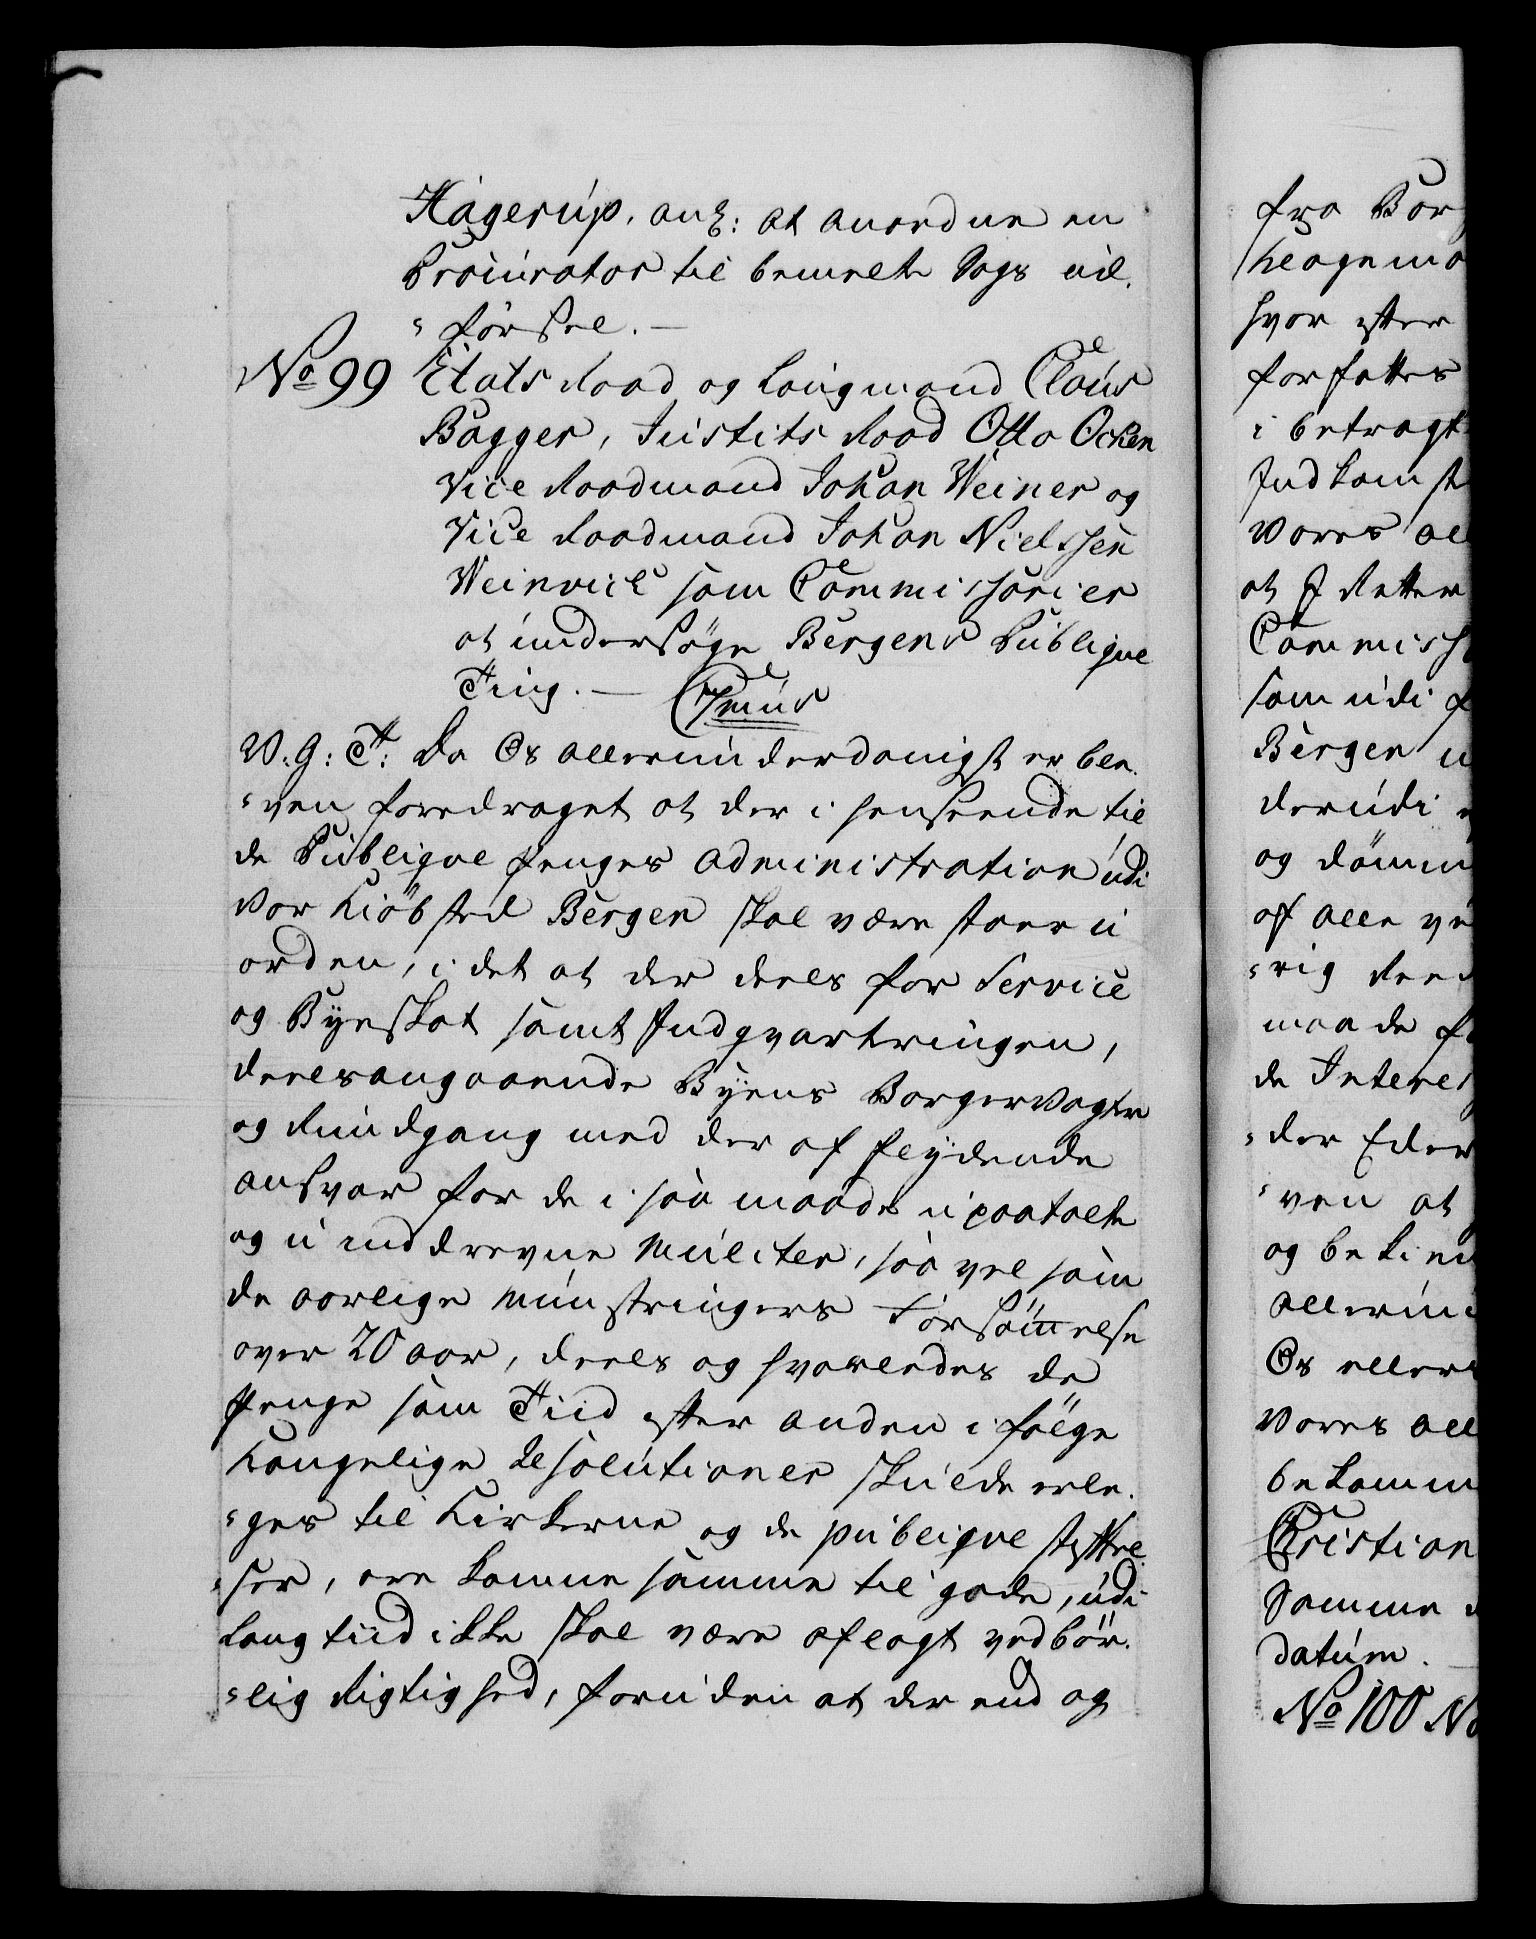 Hagerup, ang: at anordne en
Procurator til bemelte Sags ud-
"førsel. —
No 99 Etats Raad og Laugmand Claus
Bagger, Justits Raad Otto Ocken
Vice Raadmand Johan Weiner og
Vice Raadmand Johan Nielssen
Weinvich som Commissarier
at undersøge Bergens Publique
Ting. —
V. G: T: Da Os allerunderdanigst er ble-
"ven foredraget at der i henseende til
de Publique Penges Administration udi
vor Kiøbsted Bergen skal være stoer U
orden, i det at der deels for Service
og Byeskat samt Indqvarteringen,
deelsangaaende Byens Borgervagter
og Rundgang med der af flydende
ansvar for de i saa maade upaatalte
og u inddrevne Mulcter, saa vel som
de aarlige Munstringers Forsømmelse
over 20 aar, deels og hvorledes de
Penge som Tiid efter anden i følge
Kongelige Resolutioner skulde erlæ-
"ges til Kirkerne og de publique stiftel-
"ser, ere komne samme til gode, udi
lang tiid ikke skal være aflagt vedbør-
"lig Rigtighed, foruden at der end og

fra Bor
Klagema
hvor efter
forfattes
i betragt
Indkomst
Vores all
at I Retter
Commissa
som udi
Bergen
derudi
og dömm
af alle
"rig
maade
de Interes
"der Eder
"ven at
og bekien
allerun
Os aller
Vores all
bekomm
Christian
Samme
datum. —
No 100